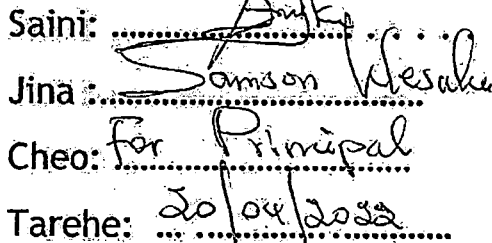 Saini:
Jina: Samson
Cheo: for Principal
Tarehe: 20/04/2022